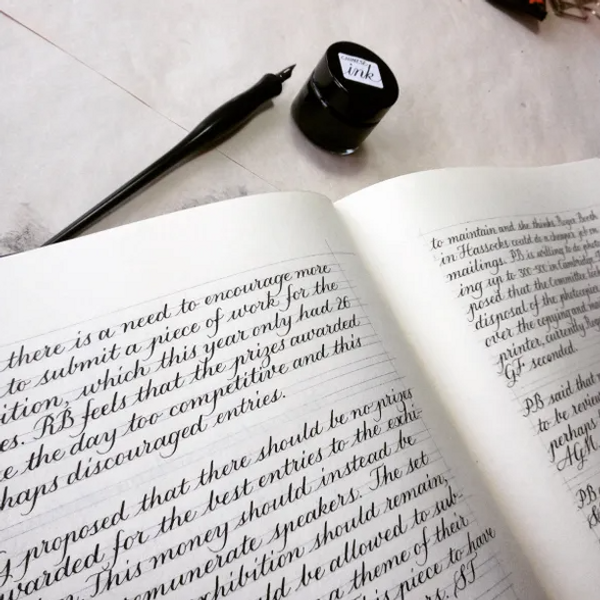 ink
there is a need to encourage more
to submit a piece of work for the
ition, which this year only had 26
es. RB feels that the prizes awarded
e the day too competitive and this
haps discouraged entries.
proposed that there should be no prizes
warded for the best entries to the exhi-
This money should instead be
emunerate speakers. The set
exhibition should remain,
ld be allowed to sub-
a theme of their
is piece to have
rs. ST
to maintain and she thinks Roger Booth
in Hassocks could do a cheaper job on
mailings. PB is willing to do photo
ing up to 300-500 in Cambridge.
posed that the Committee
disposal of the photocopier
over the copying and
printer, currently Roger
GF seconded.
PB said that
to be revie
perhaps
AGM.
PB